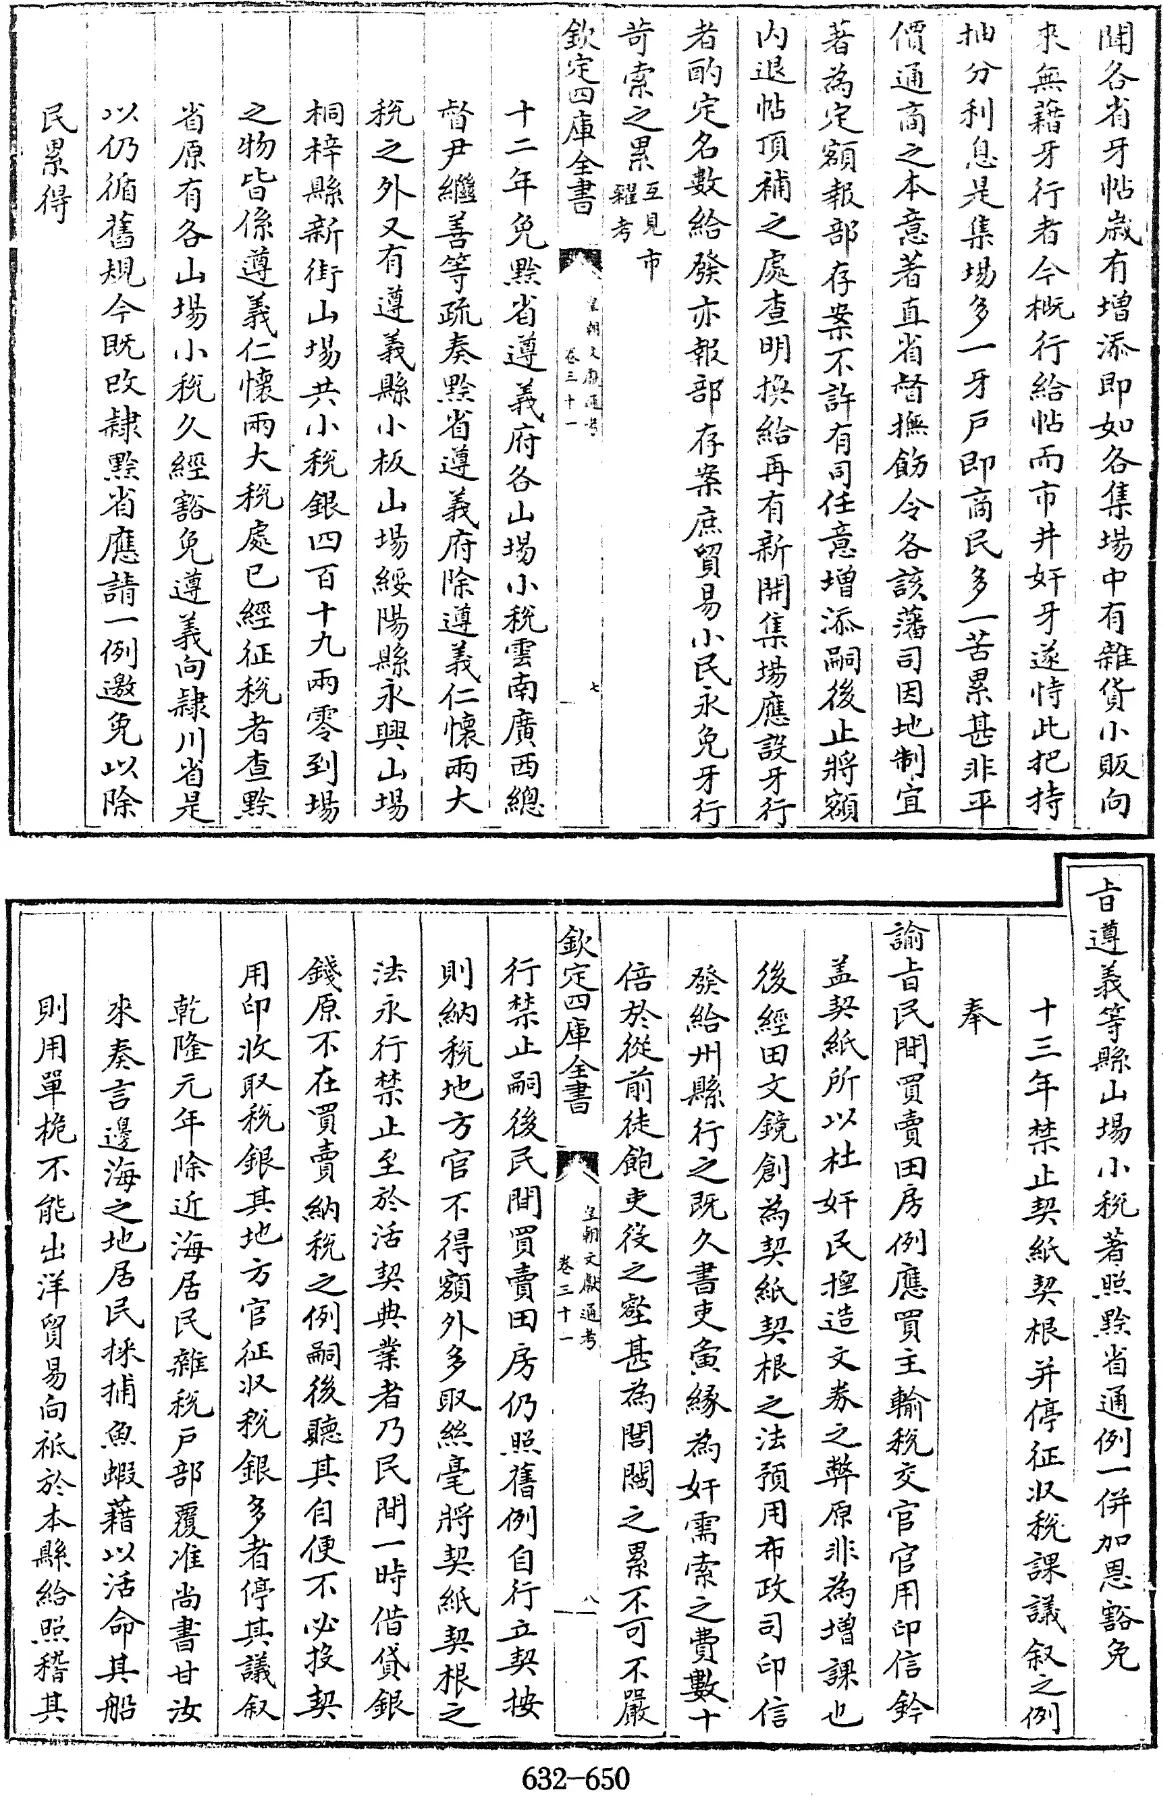 聞各省牙帖嵗有增添即如各集場中有雜貨小販向
來無藉牙行者今概行給帖而市井奸牙遂恃此把持
抽分利息是集場多一牙戶即商民多一苦累甚非平
價通商之本意著直省督撫飭令各該藩司因地制宜
著為定額報部存案不許有司任意增添嗣後止將額
内退帖頂補之處查明換給再有新開集場應設牙行
者酌定名數給發亦報部存案庶貿易小民永免牙行
苛索之累互見市糴考
欽定四庫全書
皇朝文獻通考
卷三十一
七
十二年免黔省遵義府各山場小税雲南廣西總
督尹繼善等疏奏黔省遵義府除遵義仁懷兩大
税之外又有遵義縣小板山場綏陽縣永興山場
桐梓縣新街山場共小税銀四百十九兩零到場
之物皆係遵義仁懷兩大税處已經征税者查黔
省原有各山場小税久經豁免遵義向隸川省是
以仍循舊規今既改隸黔省應請一例邀免以除
民累得
㫖遵義等縣山場小税著照黔省通例一併加恩豁免
十三年禁止契紙契根并停征收税課議叙之例
奉
諭㫖民間買賣田房例應買主輸税交官官用印信鈐
盖契紙所以杜奸民揑造文券之弊原非為增課也
後經田文鏡創為契紙契根之法預用布政司印信
發給州縣行之既久書吏夤緣為奸需索之費數十
倍於從前徒飽吏役之壑甚為閭閻之累不可不嚴
欽定四庫全書
皇朝文獻通考
卷三十一
八
行禁止嗣後民間買賣田房仍照舊例自行立契按
則納税地方官不得額外多取絲毫將契紙契根之
法永行禁止至於活契典業者乃民間一時借貸銀
錢原不在買賣納税之例嗣後聽其自便不必投契
用印收取税銀其地方官征收税銀多者停其議叙
乾隆元年除近海居民雜税戶部覆准尚書甘汝
來奏言邊海之地居民採捕魚蝦藉以活命其船
則用單桅不能出洋貿易向祗於本縣給照稽其
632-650